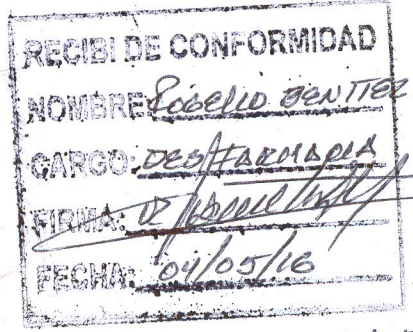 RECIBI DE CONFORMIDAD
NOMBRE: ROGELIO BENITEZ
CARGO:
FIRMA:
FECHA: 04/05/16